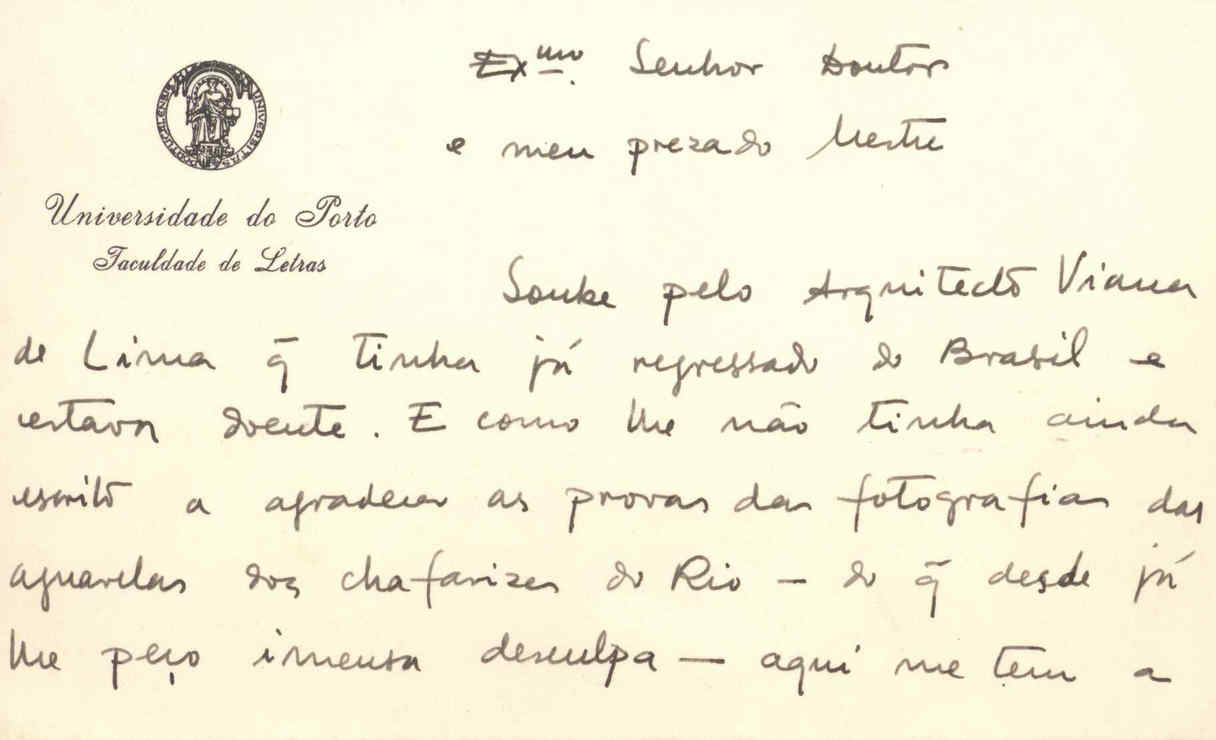 Exmo. Senhor Doutor
e meu prezado Mestre
Universidade do Porto
Faculdade de Letras
Soube pelo Arquitecto Viana
de Lima q̃ tinha já regressado do Brasil e
estava doente. E como lhe não tinha ainda
escrito a agradecer as provas das fotografias das
aguarelas dos chafarizes do Rio — do q̃ desde já
lhe peço imensa desculpa — aqui me tem a